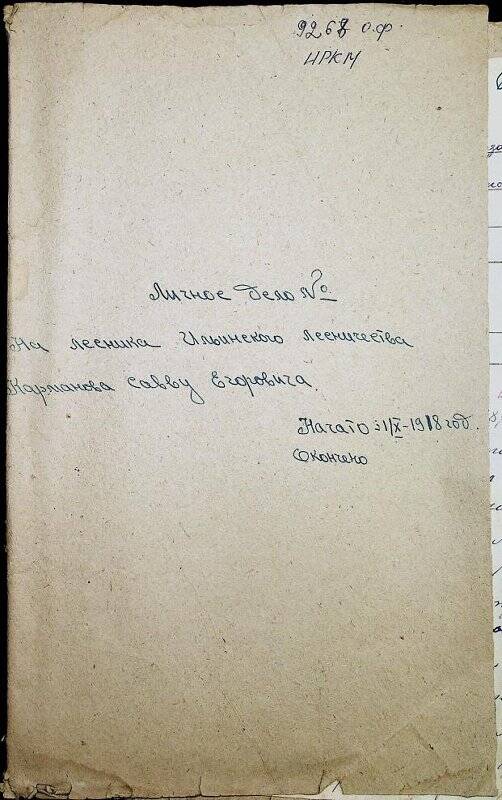 9268 О.Ф.
ИРКМ
Личное дело №
На лесника Ильинского лесничества
Карманова Савву Егоровича.
Начато 31/X-1918 год.
Окончено